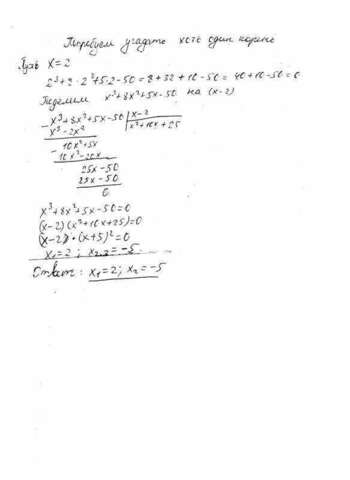 Попробуем угадать хоть один корень
Пусть x=2
2³+8·2²+5·2-50=8+32+10-50=40+10-50=0
Поделим x³+8x²+5x-50 на (x-2)
x³+8x²+5x-50 | x-2
x³-2x² | x²+10x+25
10x²+5x
10x²-20x
25x-50
25x-50
0
x³+8x²+5x-50=0
(x-2)(x²+10x+25)=0
(x-2)·(x+5)²=0
x₁=2; x₂,₃=-5.
Ответ: x₁=2; x₂=-5